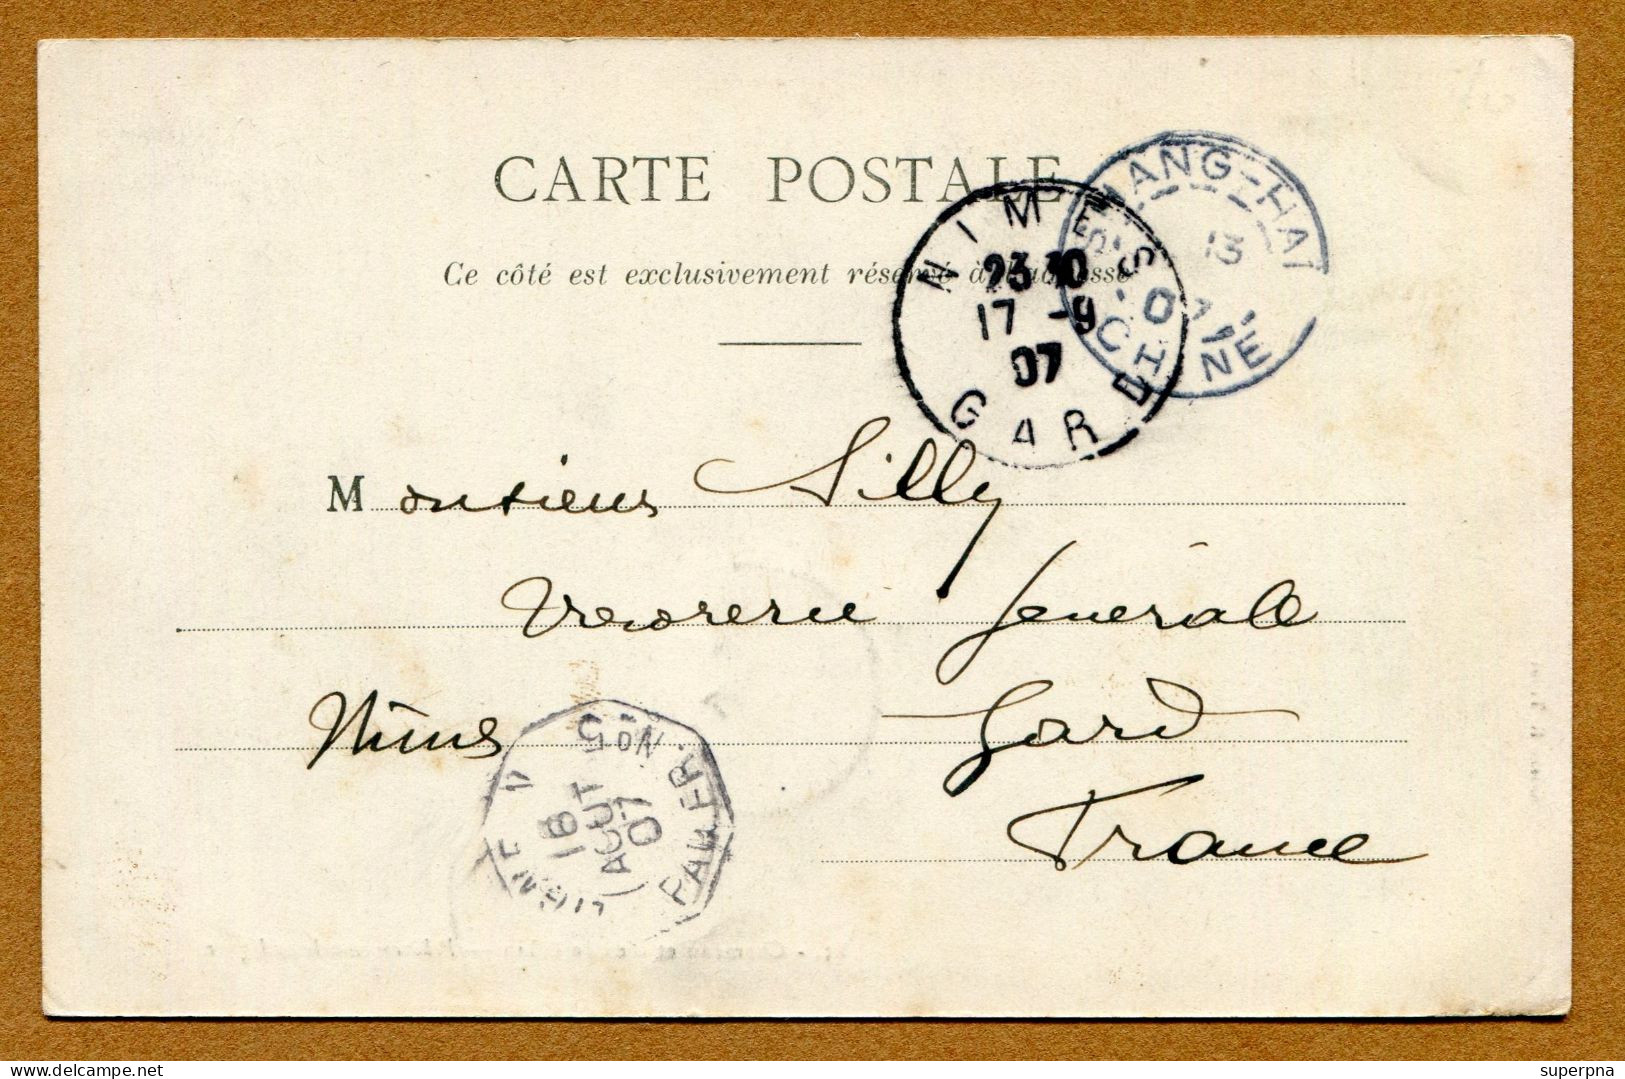 CARTE POSTALE
Ce côté est exclusivement réservé à l'adresse
SHANG-HAI
13
07
CHINE
NIMES
23 30
17 -9
07
GARD
Monsieur Silly
Tresorerie Générale
Nîmes Gard
France
LIGNE N
PAQ. FR. No 5
18
AOUT
07
superpna